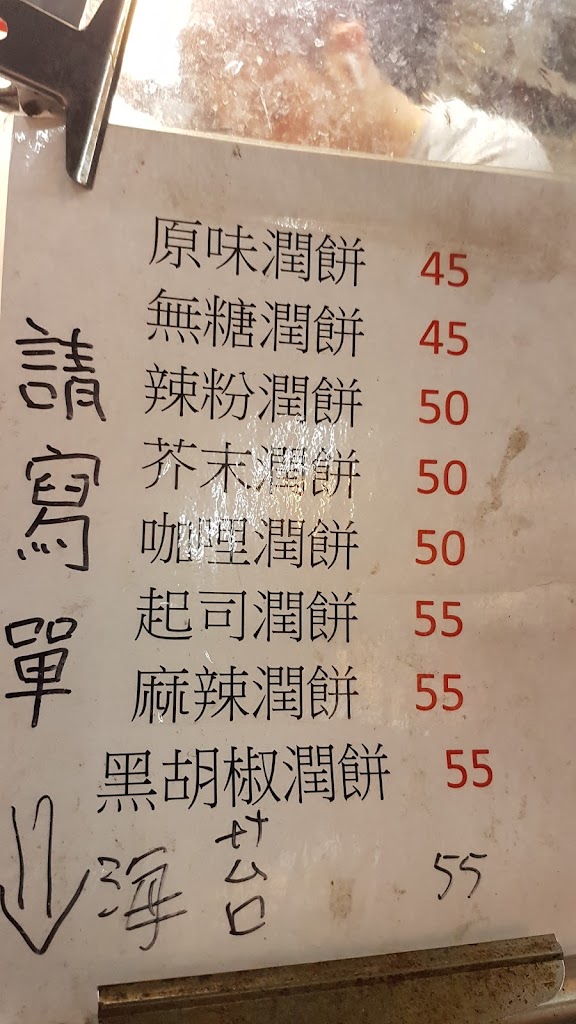 原味潤餅 45
無糖潤餅 45
辣粉潤餅 50
芥末潤餅 50
咖哩潤餅 50
起司潤餅 55
麻辣潤餅 55
黑胡椒潤餅 55
海苔 55
請寫單